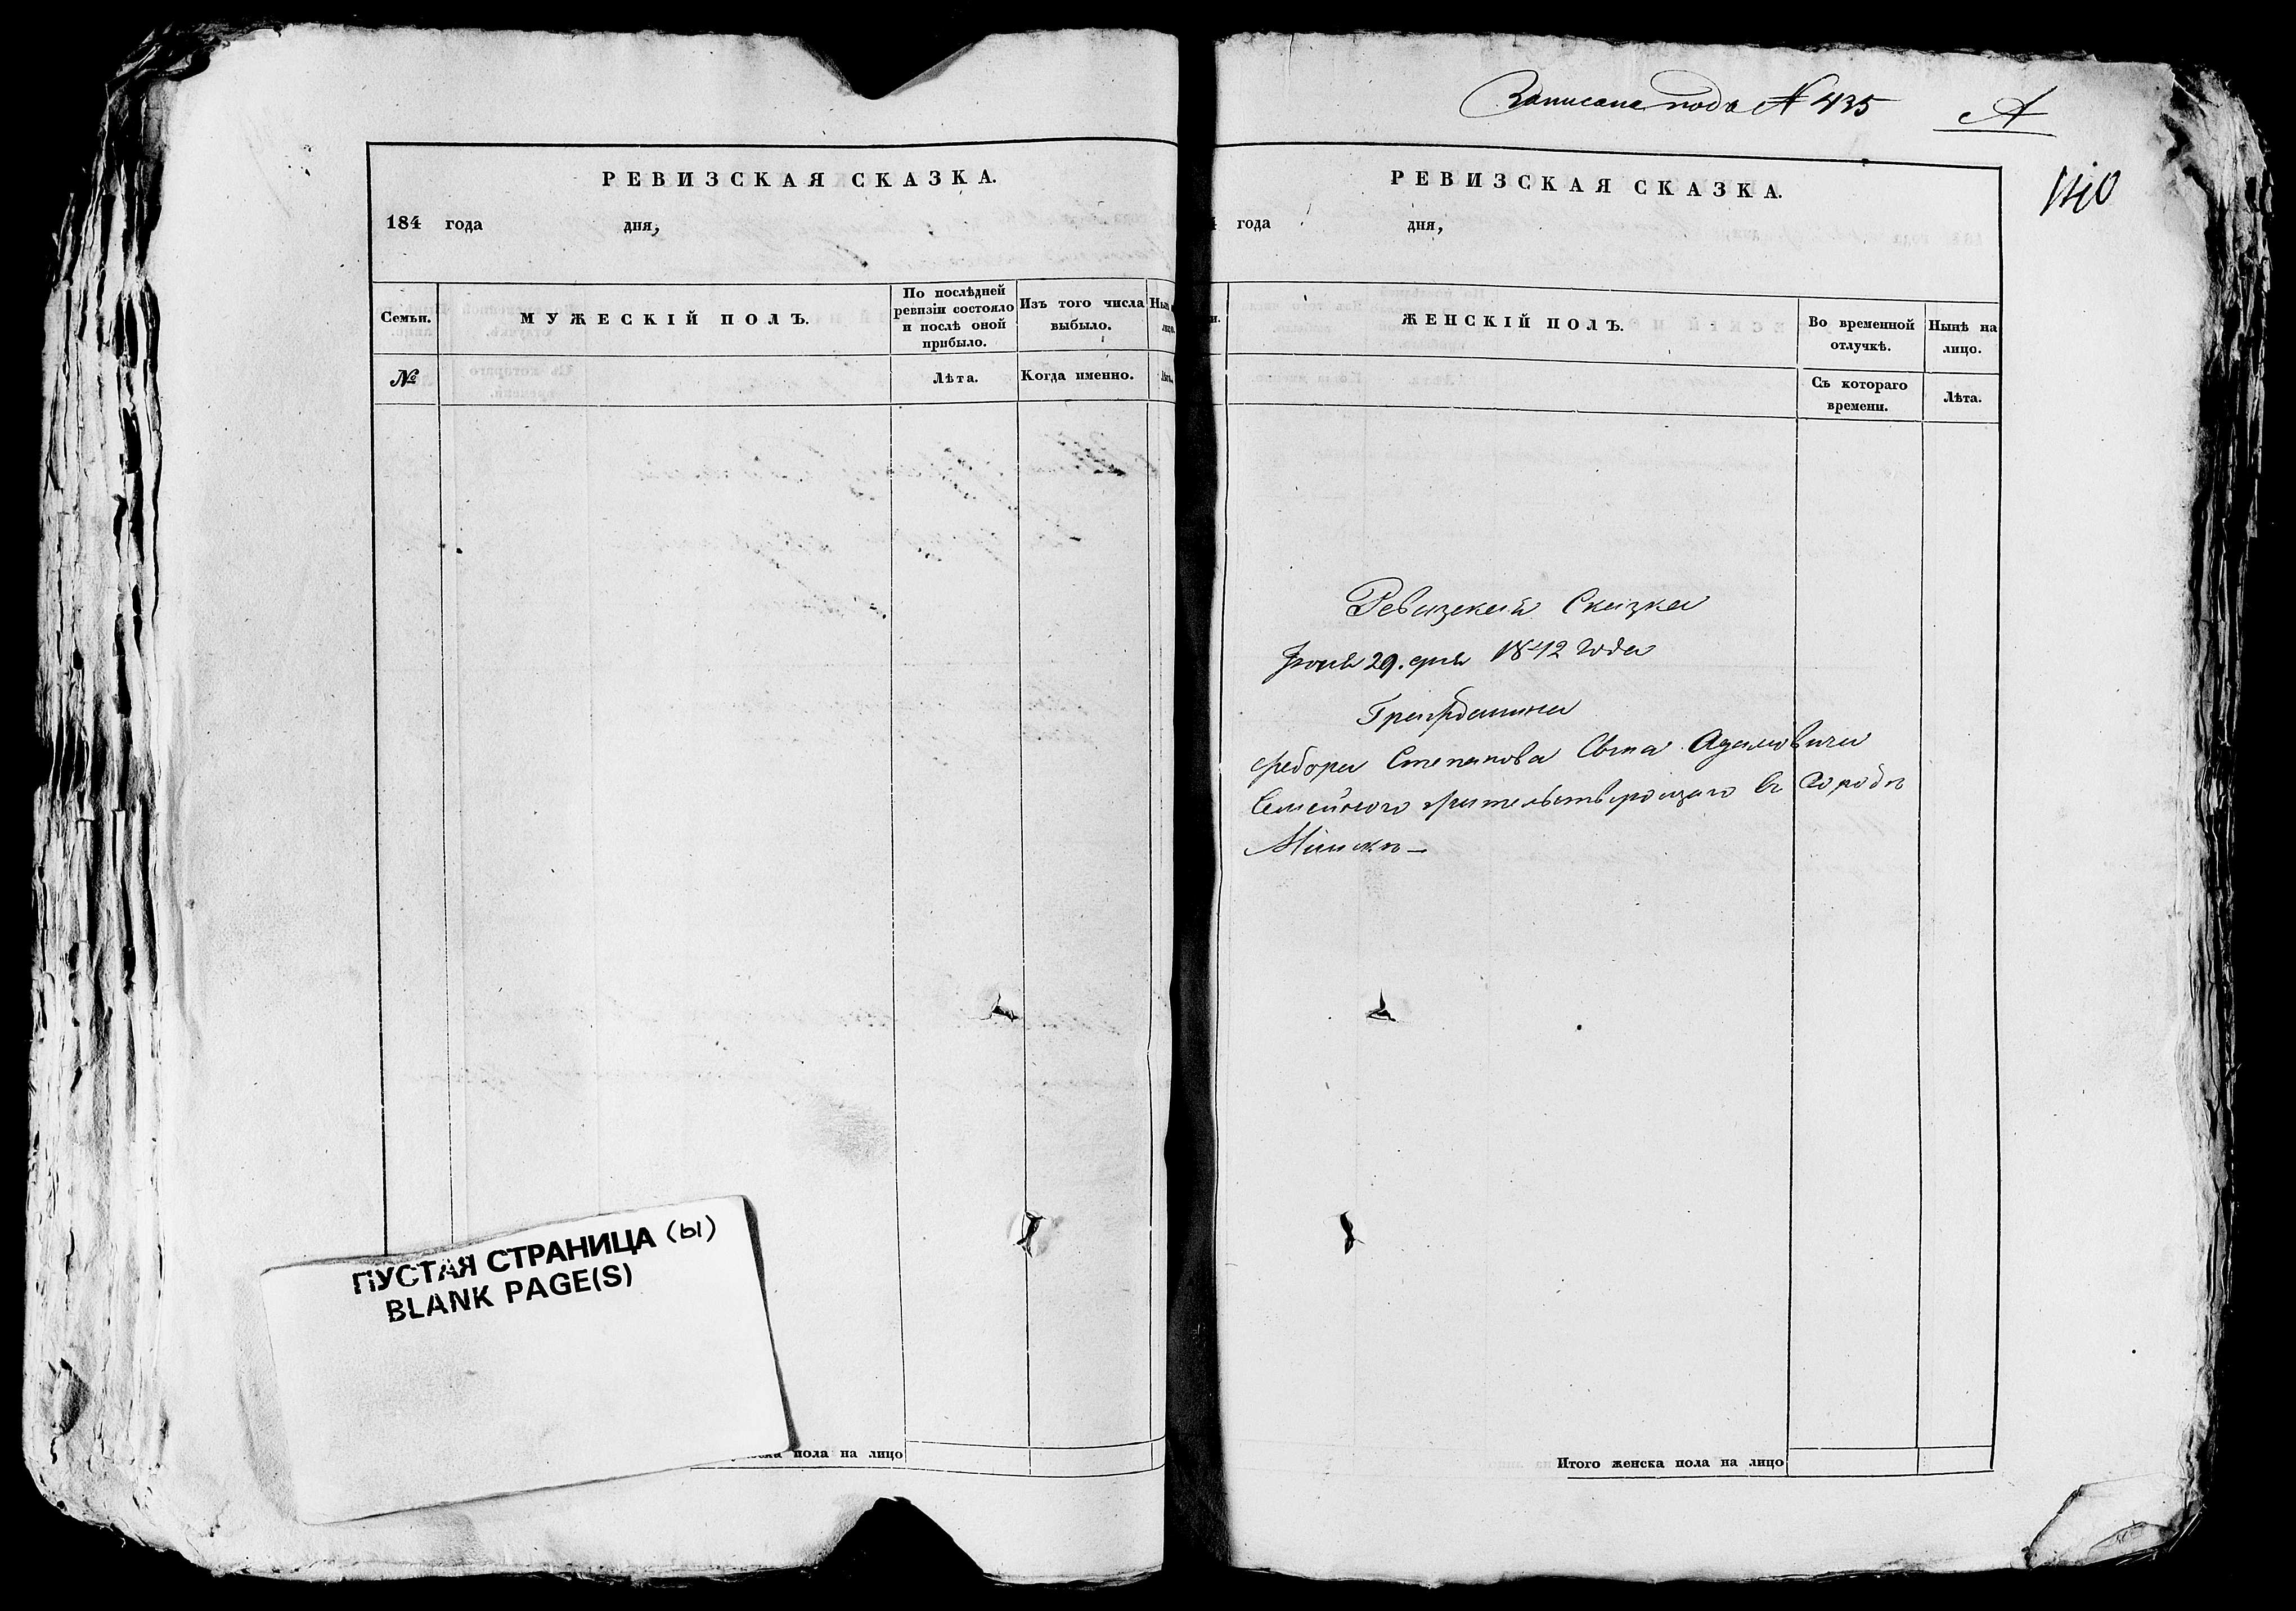 РЕВИЗСКАЯ СКАЗКА.
184 года дня,
Семьи.
МУЖЕСКІЙ ПОЛЪ.
По послѣдней
ревизіи состояло
и послѣ оной
прибыло.
Изъ того числа
выбыло.
№
Лѣта.
Когда именно.
ПУСТАЯ СТРАНИЦА (ы)
BLANK PAGE(S)
пола на лицо
Записана подъ № 435
А
140
РЕВИЗСКАЯ СКАЗКА.
года дня,
ЖЕНСКІЙ ПОЛЪ.
Во временной
отлучкѣ.
Нынѣ на
лицо.
Съ котораго
времени.
Лѣта.
Ревизская Сказка
29. дня 1842 года
Гражданина
Федора Степанова Сына Адамовича
Семейного жительствующаго въ Городѣ
Минскѣ —
Итого женска пола на лицо